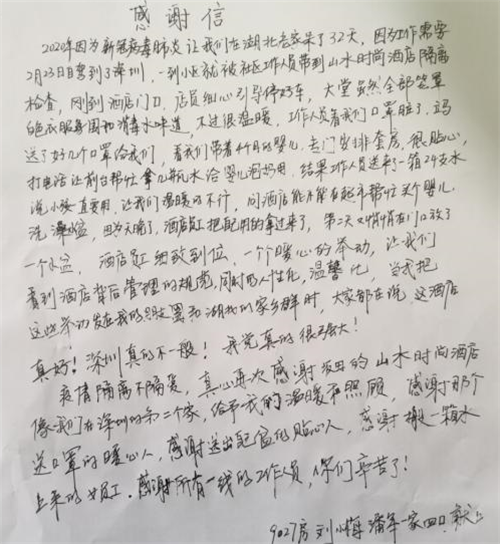 感谢信
2020年因为新冠病毒肺炎让我们在湖北老家呆了32天，因为工作需要
2月23日自驾到了深圳，一到小区就被社区工作人员带到山水时尚酒店隔离
检查，刚到酒店门口，店员细心引导停好车，大堂虽然全部笼罩
色衣服氛围和消毒水味道，不过很温暖，工作人员看我们口罩脏了，又
送了好几个口罩给我们，看我们带着4个月的婴儿，专门安排套房，很贴心，
打电话让前台帮忙拿几瓶水给婴儿泡奶用，结果工作人员送来了一箱24支水
说小孩一直要用，让我们温暖的不行，问酒店能不能在超市帮忙买个婴儿
洗澡盆，因为天晚了，酒店员工把配用的拿过来了，第二天又悄悄在门口放了
一个水盆，酒店员工细致到位，一个个暖心的举动，让我们
看到酒店背后管理的规范，同时的人性化，温馨化，当我把
这些举动发在我的朋友圈和湖北我们家乡群时，大家都在说这酒店
真好！深圳真的不一般！我觉真的很强大！
疫情隔离不隔爱，真心再次感谢发田的山水时尚酒店
像我们在深圳的第二个家，给予我们温暖和照顾，感谢那个
送口罩的暖心人，感谢送出配盆的贴心人，感谢搬一箱水
上来的女员工，感谢所有一线的工作人员，你们辛苦了！
9027房 刘小梅 潘军一家四口